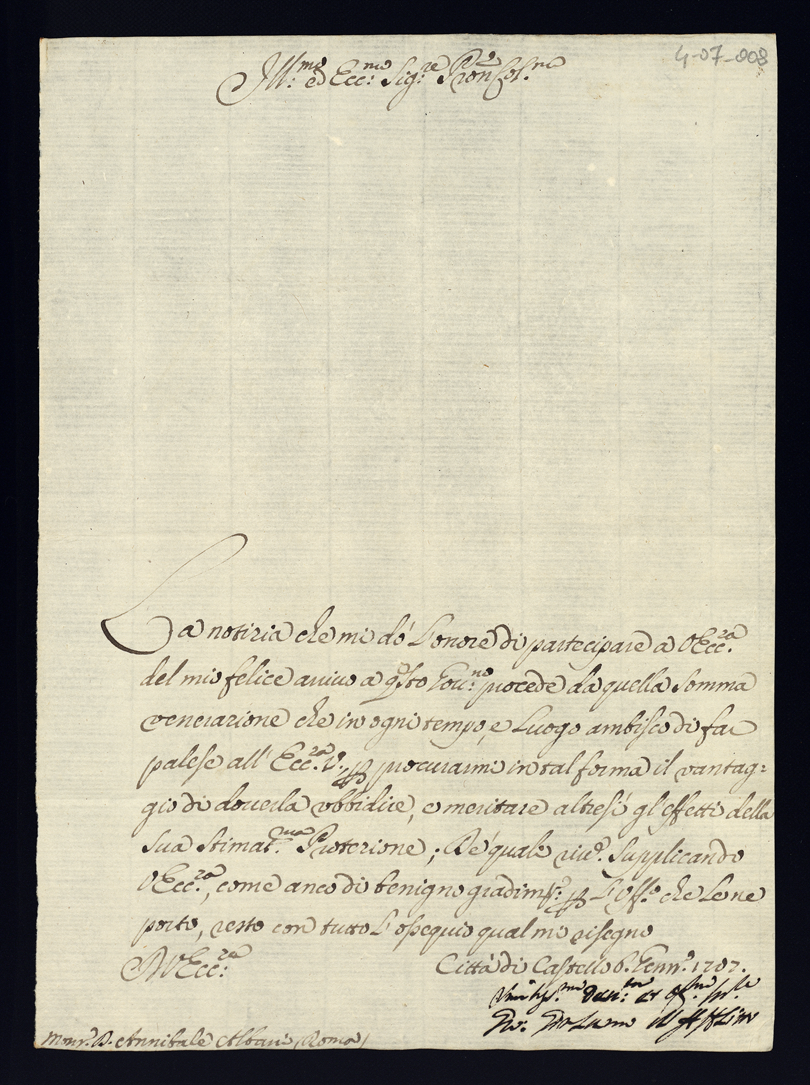 4-07-008
Ill:mo ed Ecc:mo Sig:re Pron Col:mo
La notizia che mi dò l'onore di partecipare a V Ecc:za
del mio felice arrivo a qsto Gov:no procede da quella somma
venerazione che in ogni tempo, e luogo ambisco di far
palese all' Ecc:za V:, p procurarmi in tal forma il vantag:
gio di doverla ubbidire, e meritare altresì gl'effetti della
sua stimat:ma Protezione; De quale riv:o supplicando
V Ecc:za, come anco di benigno gradim:to p l'Off:o che le ne
porto, resto con tutto l'ossequio qual mi risegno
Di V Ecc:za
Città di Castello 6. Genn:o 1707.
Monsr. D. Annibale Albani (Roma)